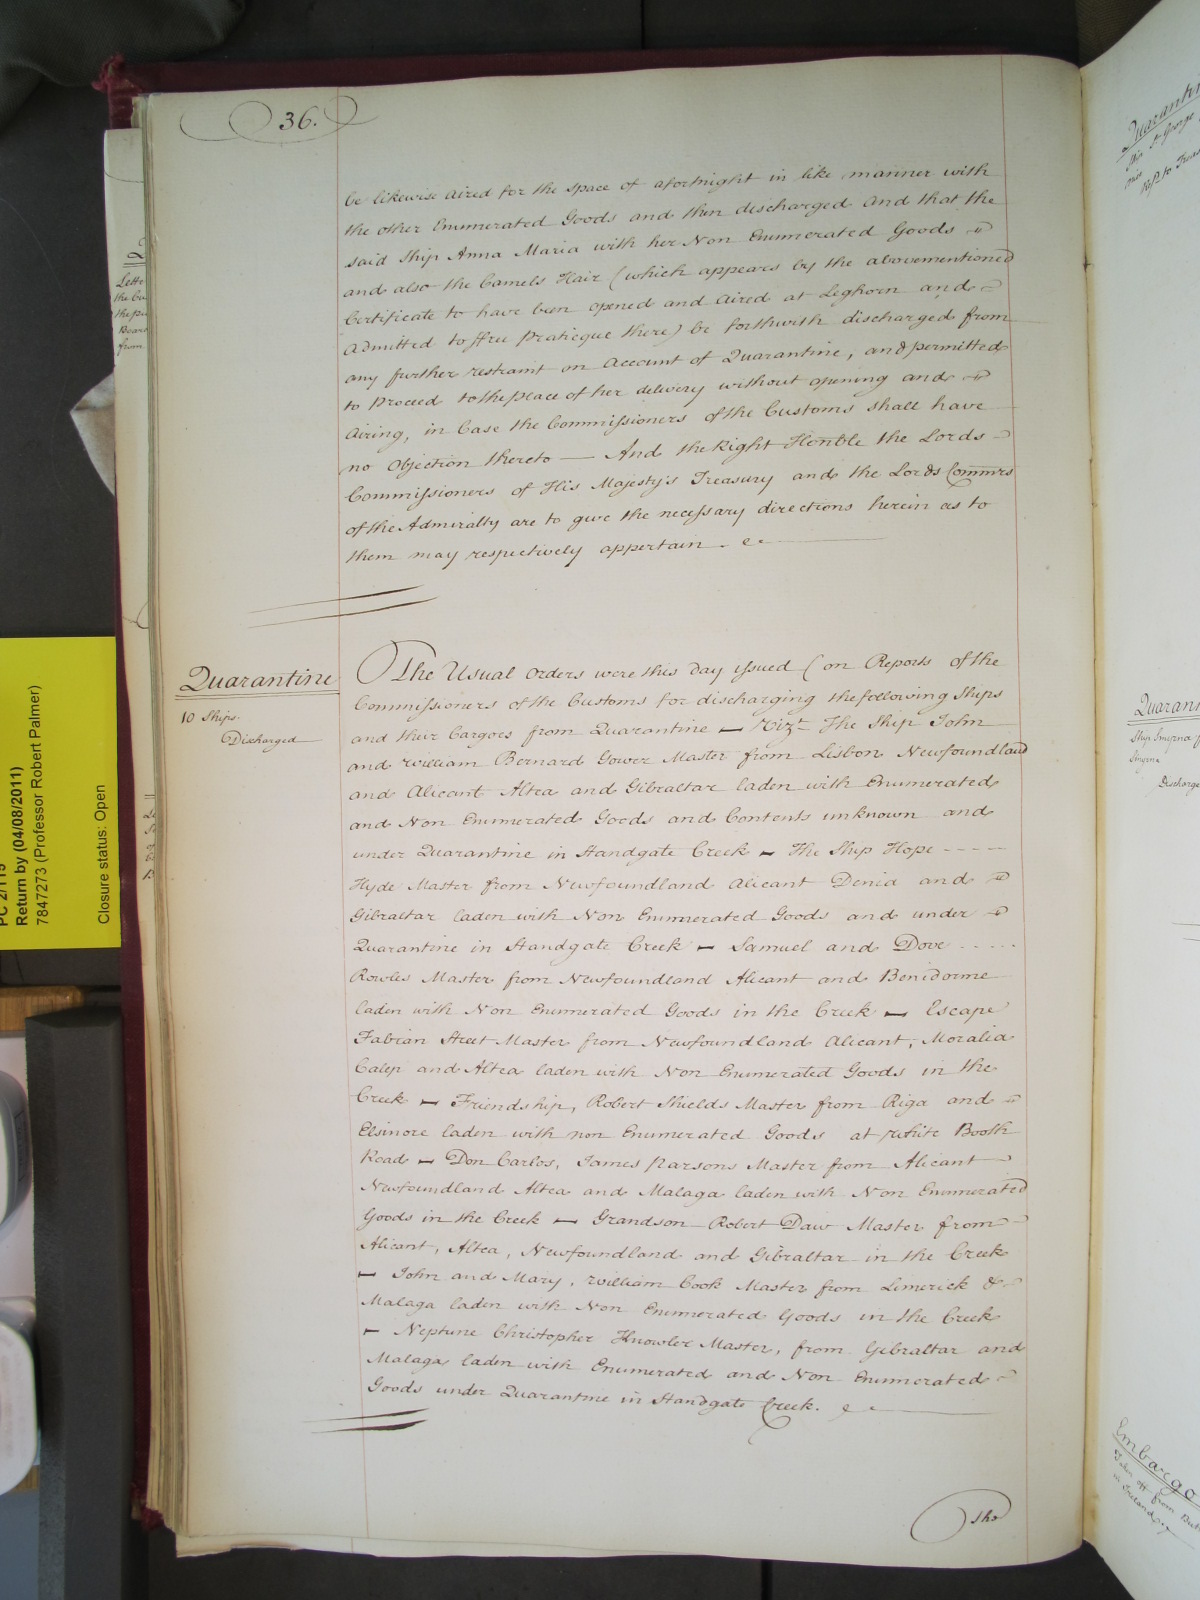 36.
be likewise aired for the space of afortnight in like manner with
the other Enumerated Goods and then discharged And that the
said Ship Anna Maria with her Non Enumerated Goods
and also the Camels Hair (which appears by the abovementioned
Certificate to have been opened and Aired at Leghorn and
Admitted to ffree Praticque there) be forthwith discharged from
any further restraint on Account of Quarantine, and permitted
to Proceed to the place of her delivery without opening and
Airing, in Case the Commissioners of the Customs shall have
no Objection thereto — And the Right Honble the Lords
Commissioners of His Majesty's Treasury and the Lords Commrs
of the Admiralty are to give the necessary directions herein as to
them may respectively appertain.
Quarantine
10 Ships
Discharged
The Usual Orders were this day issued (on Reports of the
Commissioners of the Customs for discharging the following Ships
and their Cargoes from Quarantine — Vizt The Ship John
and William Bernard Gower Master from Lisbon Newfoundland
and Alicant Altea and Gibraltar laden with Enumerated
and Non Enumerated Goods and Contents unknown and
under Quarantine in Standgate Creek — The Ship Hope ----
Hyde Master from Newfoundland Alicant Denia and
Gibraltar laden with Non Enumerated Goods and under
Quarantine in Standgate Creek — Samuel and Dove .....
Rowles Master from Newfoundland Alicant and Benidorme
laden with Non Enumerated Goods in the Creek — Escape
Fabian Street Master from Newfoundland Alicant, Moralia
Calep and Altea laden with Non Enumerated Goods in the
Creek — Friendship, Robert Shields Master from Riga and
Elsinore laden with non Enumerated Goods at White Booth
Road — Don Carlos, James Parsons Master from Alicant
Newfoundland Altea and Malaga laden with Non Enumerated
Goods in the Creek — Grandson Robert Daw Master from
Alicant, Altea, Newfoundland and Gibraltar in the Creek
— John and Mary, William Cook Master from Limerick &
Malaga laden with Non Enumerated Goods in the Creek
— Neptune Christopher Knowler Master, from Gibraltar and
Malaga laden with Enumerated and Non Enumerated
Goods under Quarantine in Standgate Creek.
The
PC 2/119
Return by (04/08/2011)
7847273 (Professor Robert Palmer)
Closure status: Open
Lette
from
Quarantin
Ship St George
Quaran
Ship Smyrna
Smyrna
Discharge
Embargo
Taken off from
in Ireland